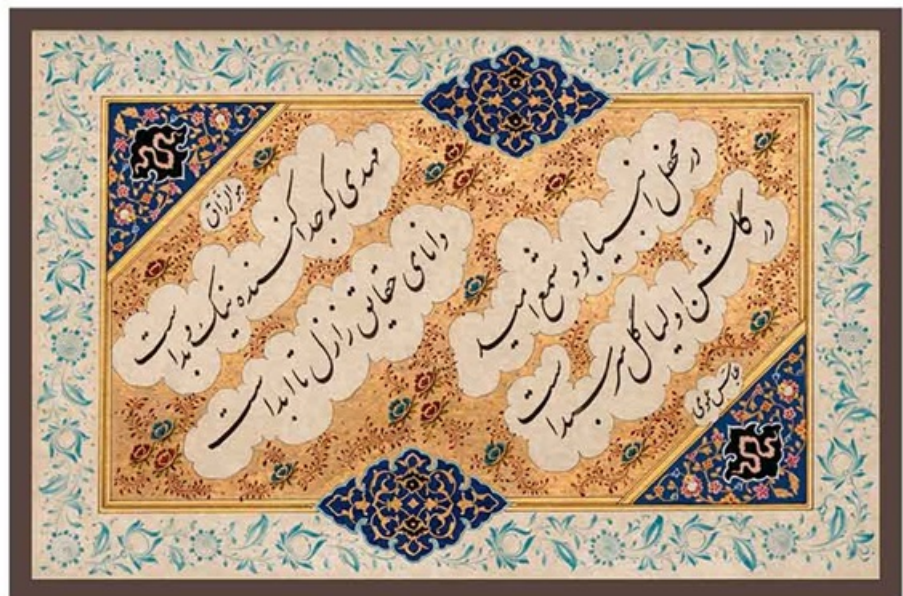 هوالرزاق
مهدی که جدا کننده نیک و بد است
دانای حقایق ز ازل تا ابد است
در محفل انبیا بود شمع امید
در گلشن اولیا گل سرسبد است